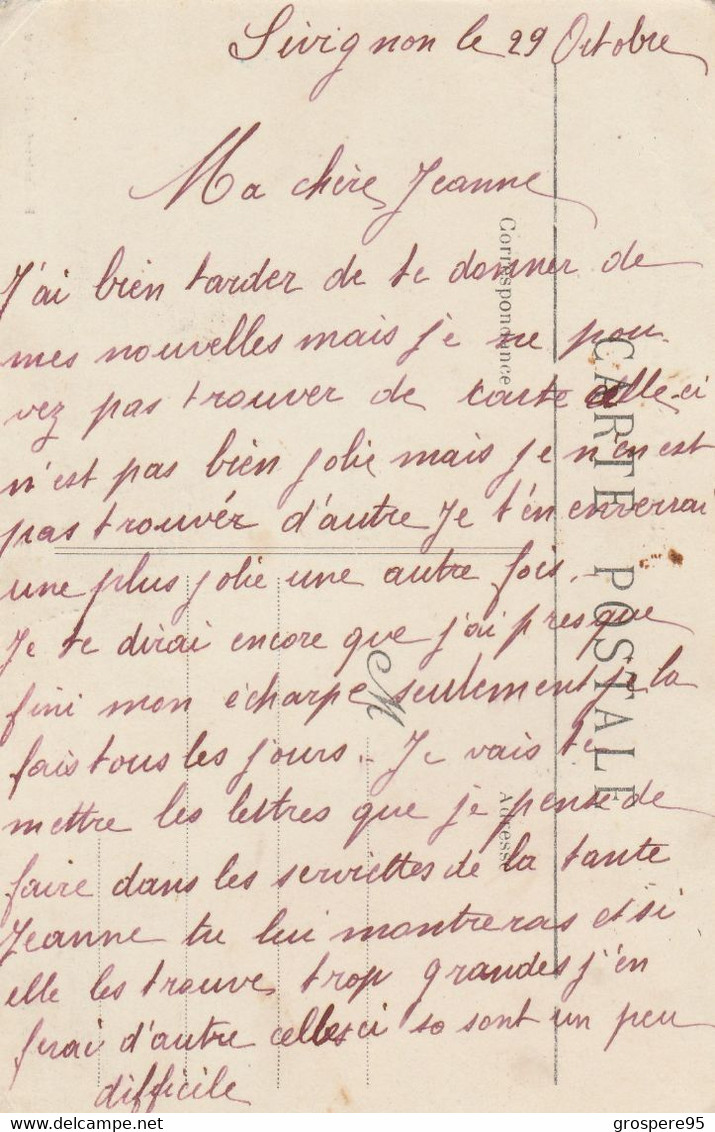 Sivignon le 29 Octobre
Ma chère Jeanne
J'ai bien tarder de te donner de
mes nouvelles mais je ne pou-
vez pas trouver de carte celle-ci
n'est pas bien jolie mais je n'en est
pas trouvér d'autre Je t'en enverrai
une plus jolie une autre fois.
Je te dirai encore que j'ai presque
fini mon écharpe seulement je la
fais tous les jours. Je vais te
mettre les lettres que je pense de
faire dans les serviettes de la tante
Jeanne tu lui montreras et si
elle les trouve trop grandes j'en
ferai d'autre celles ci so sont un peu
difficile
Correspondance
CARTE POSTALE
Adresse
M
grospere95